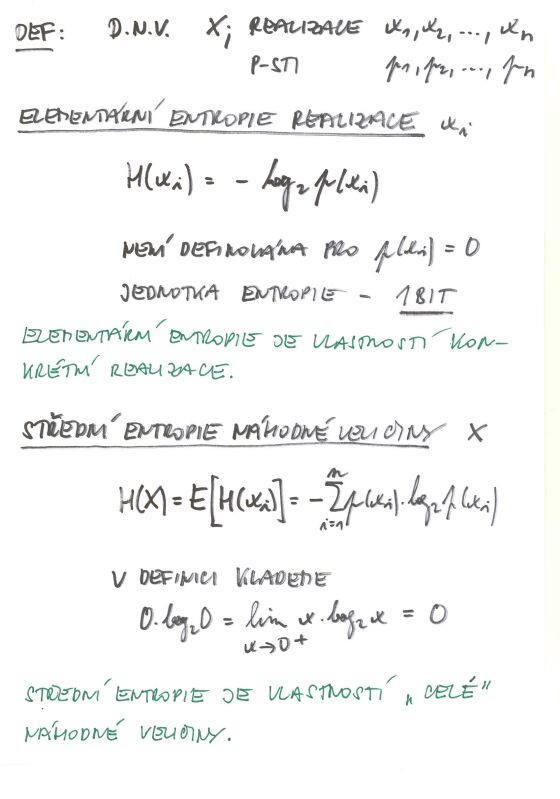 DEF: D.N.V. X; REALIZACE x₁, x₂, ..., xₙ
P-STI p₁, p₂, ..., pₙ
ELEMENTÁRNÍ ENTROPIE REALIZACE xᵢ
H(xᵢ) = - log₂ p(xᵢ)
NENÍ DEFINOVÁNA PRO p(xᵢ) = 0
JEDNOTKA ENTROPIE - 1BIT
ELEMENTÁRNÍ ENTROPIE JE VLASTNOSTÍ KON-
KRÉTNÍ REALIZACE.
STŘEDNÍ ENTROPIE NÁHODNÉ VELIČINY X
H(X) = E[H(xᵢ)] = - ∑ᵢ₌₁ⁿ p(xᵢ).log₂ p(xᵢ)
V DEFINICI KLADEME
0.log₂0 = lim x→0⁺ x.log₂x = 0
STŘEDNÍ ENTROPIE JE VLASTNOSTÍ „CELÉ"
NÁHODNÉ VELIČINY.